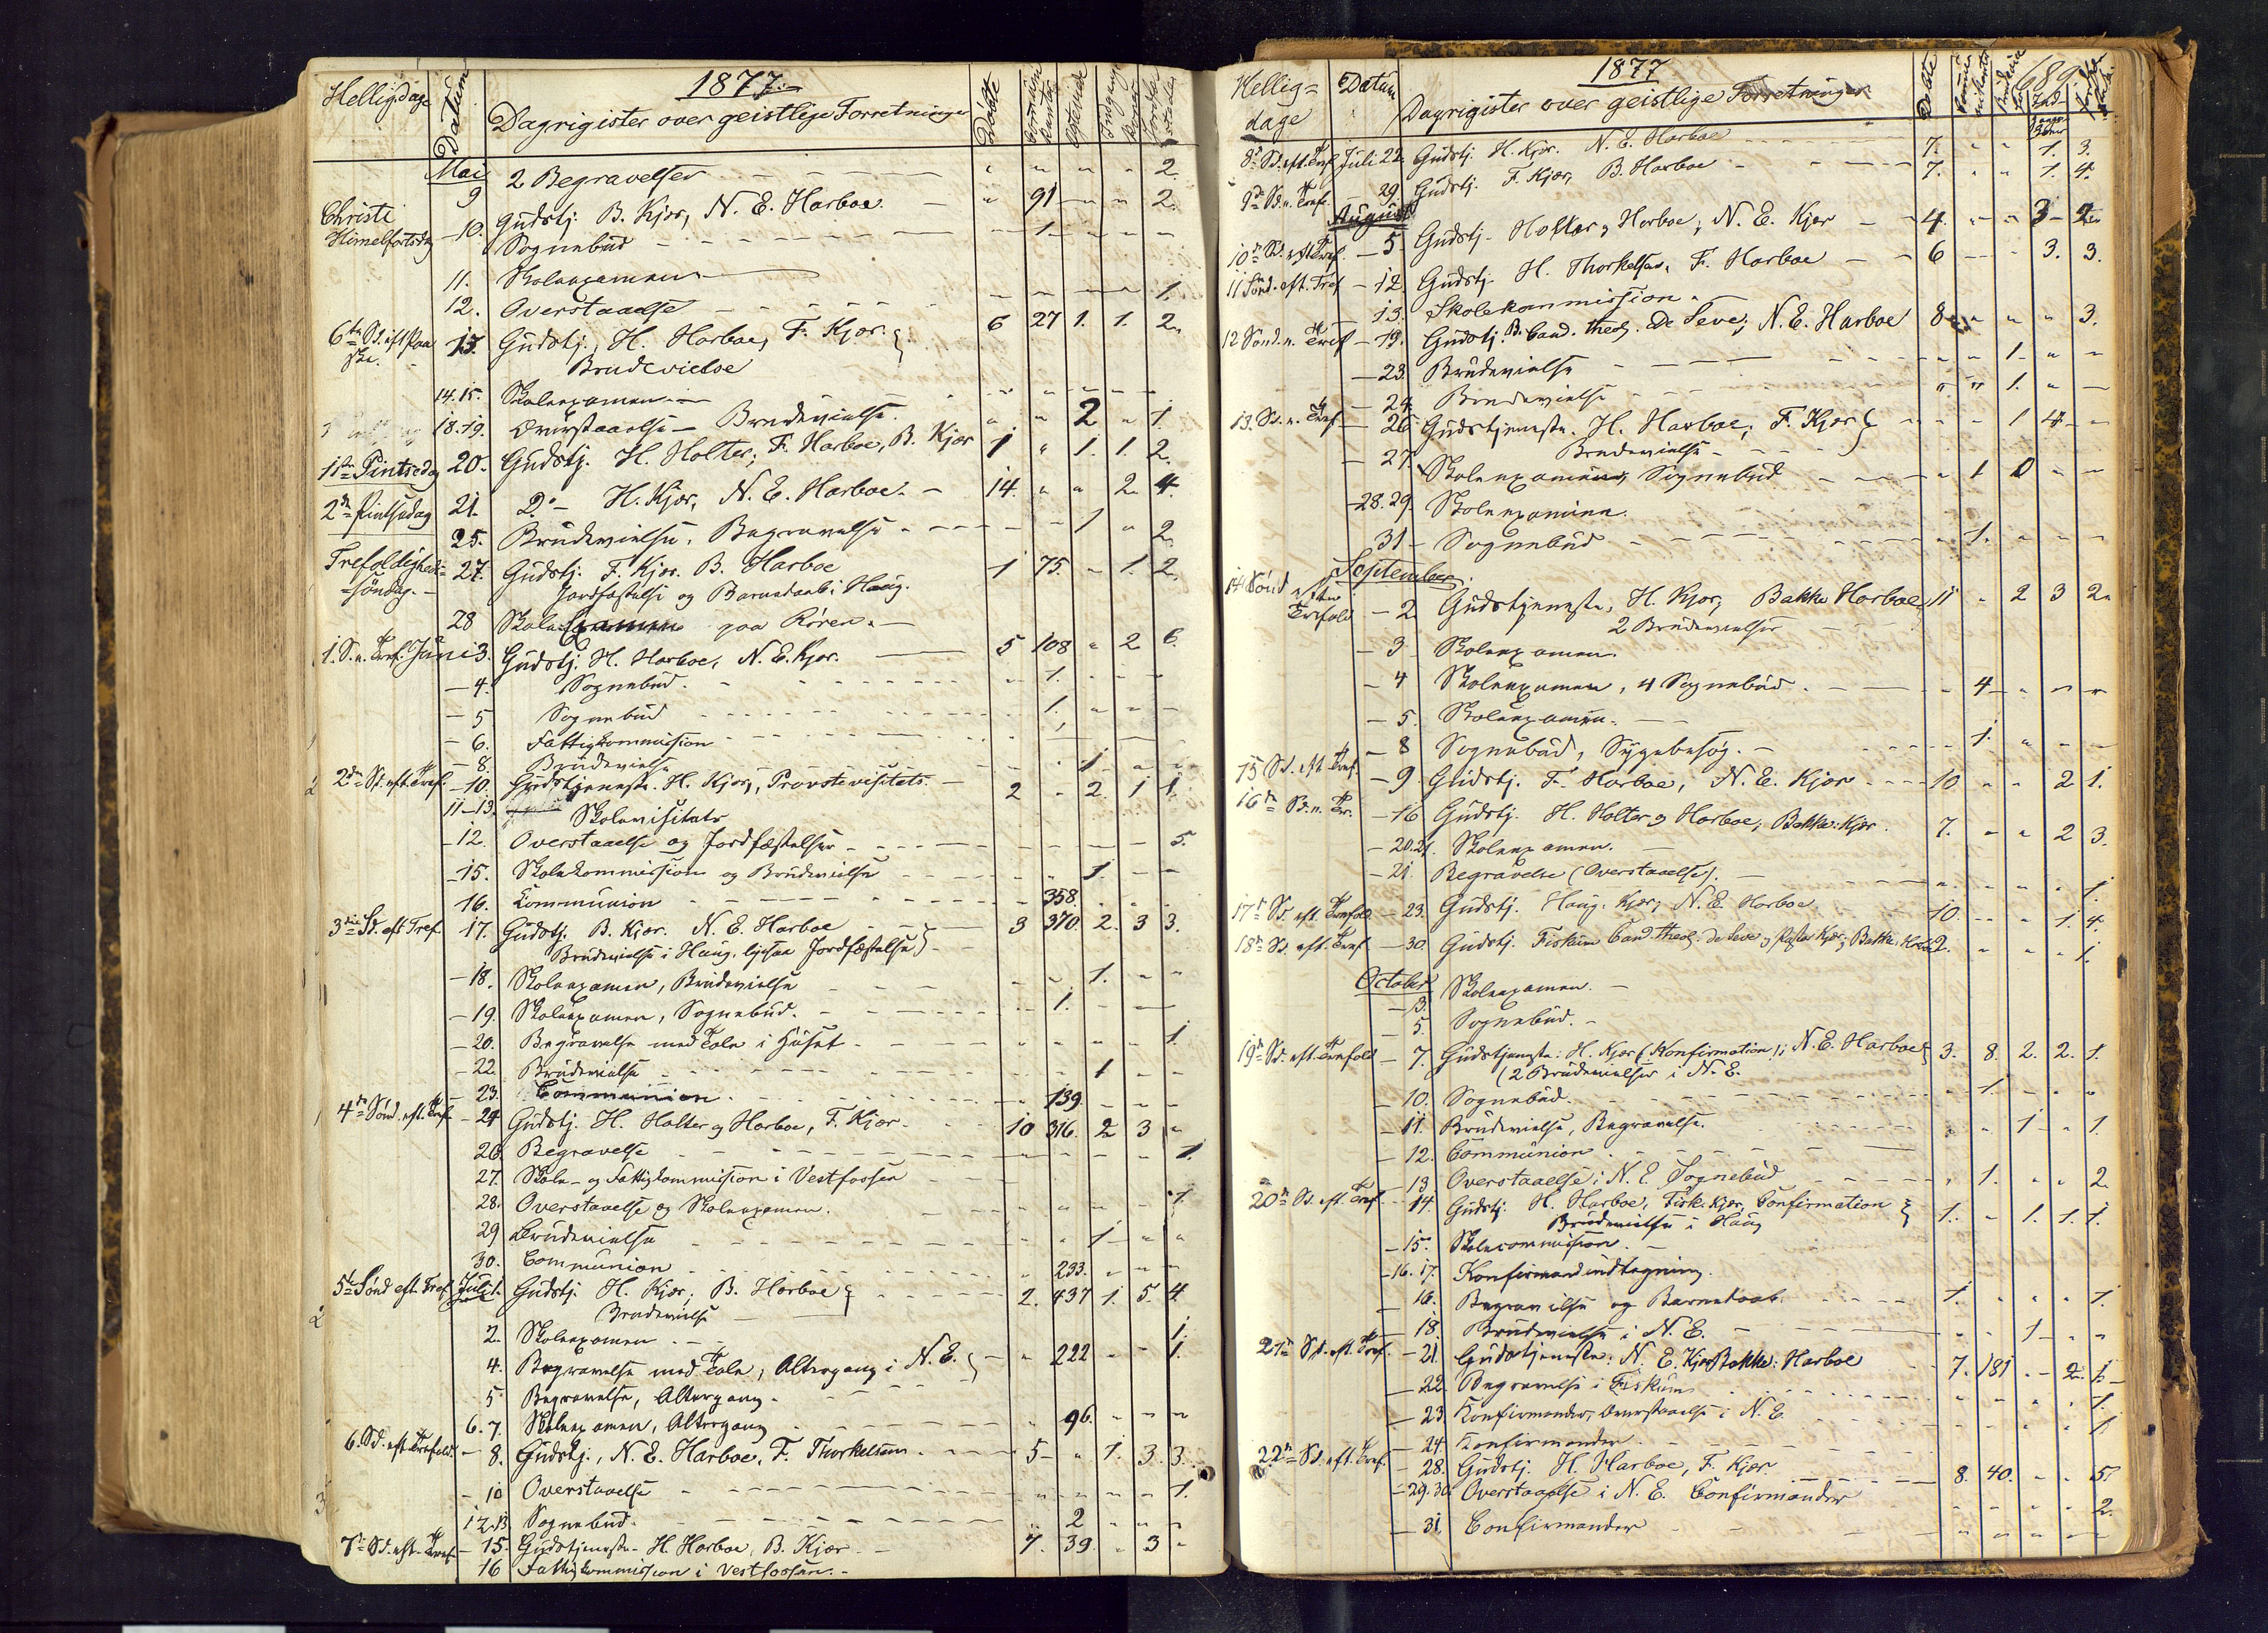 1877.
Helligdage Datum Dagrigister over geistlige Forretninger Døbte
Mai
9 2 Begravelser " " " " 2.
Christi
Himelfartsdag - 10. Gudstj. B. Kjær, N. E. Harboe. " 91 - " 2.
Sognebud 1.
11. Skoleexamen
12. Overstaaelse 1.
6te Sd. eft Paa
ske. 13. Gudstj., H. Harboe, F. Kjær. 6 27 1. 1. 2.
Brudevielse
14. 15. Skoleexamen
18. 19. Overstaaelse - Brudevielse. " " 2 " 1.
1ste Pintsedag 20. Gudstj. H. Holter; F. Harboe, B. Kjær 1 " 1. 1. 2.
2den Pintsedag 21. Do - H. Kjær, N. E. Harboe. - 14. " " 2 4.
25. Brudevielse, Begravelse 1 " 2.
Trefoldigheds-
søndag. - 27. Gudstj. F. Kjær. B. Harboe 1 75. - 1. 2.
Jordfæstelse og Barnedaab i Haug.
28 Skoleexamen paa Røren.
1. S. n. Tref. Juni 3. Gudstj. H. Harboe, N. E. Kjær. 5 108 " 2 6.
- 4. Sognebud. 1.
- 5 Sognebud 1.
- 6. Fattigkommission
- 8. Brudevielse 1
2den Sd. eft Tref. - 10. Gudstjeneste. H. Kjær, Provstevisitats. 2 - 2. 1 1.
11-13. Skolevisitats
- 12. Overstaaelse og Jordfæstelser 5.
- 15. Skolekommission og Brudevielse 1.
16. Communion 358.
3die Sd. eft Tref. 17. Gudstj. B. Kjær. N. E. Harboe 3 370. 2. 3 3.
Brudevielse i Haug, ligesaa Jordfæstelse)
- 18. Skoleexamen, Brudevielse 1.
- 19. Skoleexamen, Sognebud. 1.
- 20. Begravelse med Tale i Huset 1
- 22. Brudevielse 1
- 23. Communion. 139.
4de Sønd. eft. Tref. - 24 Gudstj. H. Holter og Harboe, F. Kjær. 10 316. 2 3 "
26. Begravelse 1.
27. Skole- og Fattigkommission i Vestfossen
28. Overstaaelse og Skoleexamen. 1
29 Brudevielse 1
30. Communion 233.
5te Sønd eft. Tref. Juli 1. Gudstj. H. Kjær; B. Harboe 2. 437 1. 5. 4.
Brudevielse
2. Skoleexamen 1.
4. Begravelse med Tale, Altergang i N. E. " 222 1.
5 Begravelse, Altergang.
6. 7 Skoleexamen, Altergang 96.
6. Sd. eft Trefold. - 8. Gudstj., N. E. Harboe, F. Thorkelsen. 5 - " 1. 3. 3.
- 10 Overstaaelse 1.
12. 13 Sognebud. 2
7de Sd. eft. Tref. - 15. Gudstjeneste. H. Harboe, B. Kjær 7. 39. " 3 "
16 Fattigkommission i Vestfossen.
1877 689
Hellig=
dage Datum Dagrigister over geistlige Forretninger Døbte
8de Sd. eft. Tref. Juli 22. Gudstj. H. Kjær. N. E. Harboe 7. " " 1. 3.
9de Sd. n. Tref. - 29 Gudstj. F. Kjær, B. Harboe 7. " " 1. 4.
August
10de Sd. eft Tref. - 5. Gudstj. Holter og Harboe; N. E. Kjær 4. " " 3 - 2.
11 Sønd. eft. Tref - 12. Gudstj. H. Thorkelsen, F. Harboe 6 3. 3.
- 13. Skolekommission.
12 Sønd. n. Tref - 19. Gudstj. B. Cand. theol. De Seve; N. E. Harboe 8 " " " 3.
- 23. Brudevielse 1.
- 24. Brudevielse 1.
13. Sd. n. Tref. - 26 Gudstjeneste. H. Harboe; F. Kjær 1 4
Brudevielse
- 27. Skoleexamen, Sognebud 1 0
- 28. 29. Skoleexamen.
31 - Sognebud 1.
September.
14 Sønd efter
Trefold - 2. Gudstjeneste. H. Kjær, Bakke Harboe 11 " 2 3 2.
2 Brudevielser
- 3 Skoleexamen.
- 4 Skoleexamen, 4 Sognebud. 4
- 5. Skoleexamen.
- 8 Sognebud, Sygebesøg. 1.
15 Sd. eft Tref. - 9. Gudstj. F. Harboe; N. E. Kjær 10 " " 2 1.
16de Sd. n. Tr. - 16 Gudstj. H. Holter og Harboe; Bakke: Kjær. 7. " " 2 3.
- 20. 21. Skoleexamen.
- 21. Begravelse (Overstaaelse). 1.
17de Sd. eft. Trefold. - 23. Gudstj. Haug. Kjær, N. E. Harboe 10. " " 1. 4.
18de Sd. eft. Tref. - 30. Gudstj. Fiskum Cand. theol. de Seve og Pastor Kjær; Bakke Harboe 2. " " " 1.
October
- 3. Skoleexamen.
- 5. Sognebud.
19de Sd. eft. Trefold - 7. Gudstjeneste: H. Kjær (Konfirmation); N. E. Harboe 3. 8. 2. 2. 1.
(2 Brudevielser i N. E.
- 10. Sognebud. 1.
- 11. Brudevielse, Begravelse. 1 1.
- 12. Communion
- 13 Overstaaelse i N. E. Sognebud 1. 2.
20de Sd. eft. Tref. - 14. Gudstj. H. Harboe, Fisk. Kjær, Confirmation 1. " 1. 1. 1.
Brudevielse i Haug
- 15. Skolecommission.
- 16. 17. Konfirmandindtagning.
16. Begravelse og Barnedaab. 1. 1.
- 18. Brudevielse i N. E. 1
21de Sd. eft. Tref. - 21. Gudstjeneste: N. E. Kjær Bakke: Harboe 7. 181 " 2. 1.
- 22. Begravelse i Fiskum 1.
- 23 Konfirmander, Overstaaelse i N. E. 1
- 24. Konfirmander.
22de Sd. eft. Tref. - 28. Gudstj. H. Harboe, F. Kjær. 8. 40. " " 5.
- 29. 30. Overstaaelse i N. E. Confirmander 2.
- 31. Confirmander